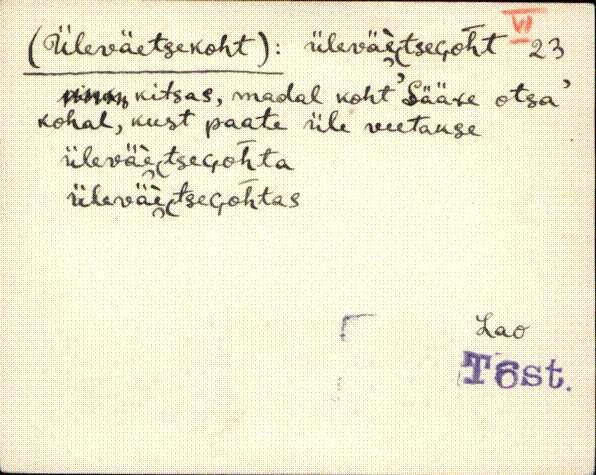 VI
(Üleväetsekoht): üleväè̯tseG̀oht 23
kitsas, madal koht 'Sääre otsa'
kohal, kust paate üle veetakse
üleväè̯tseGohta
üleväè̯tseGohtas
Lao
Tõst.